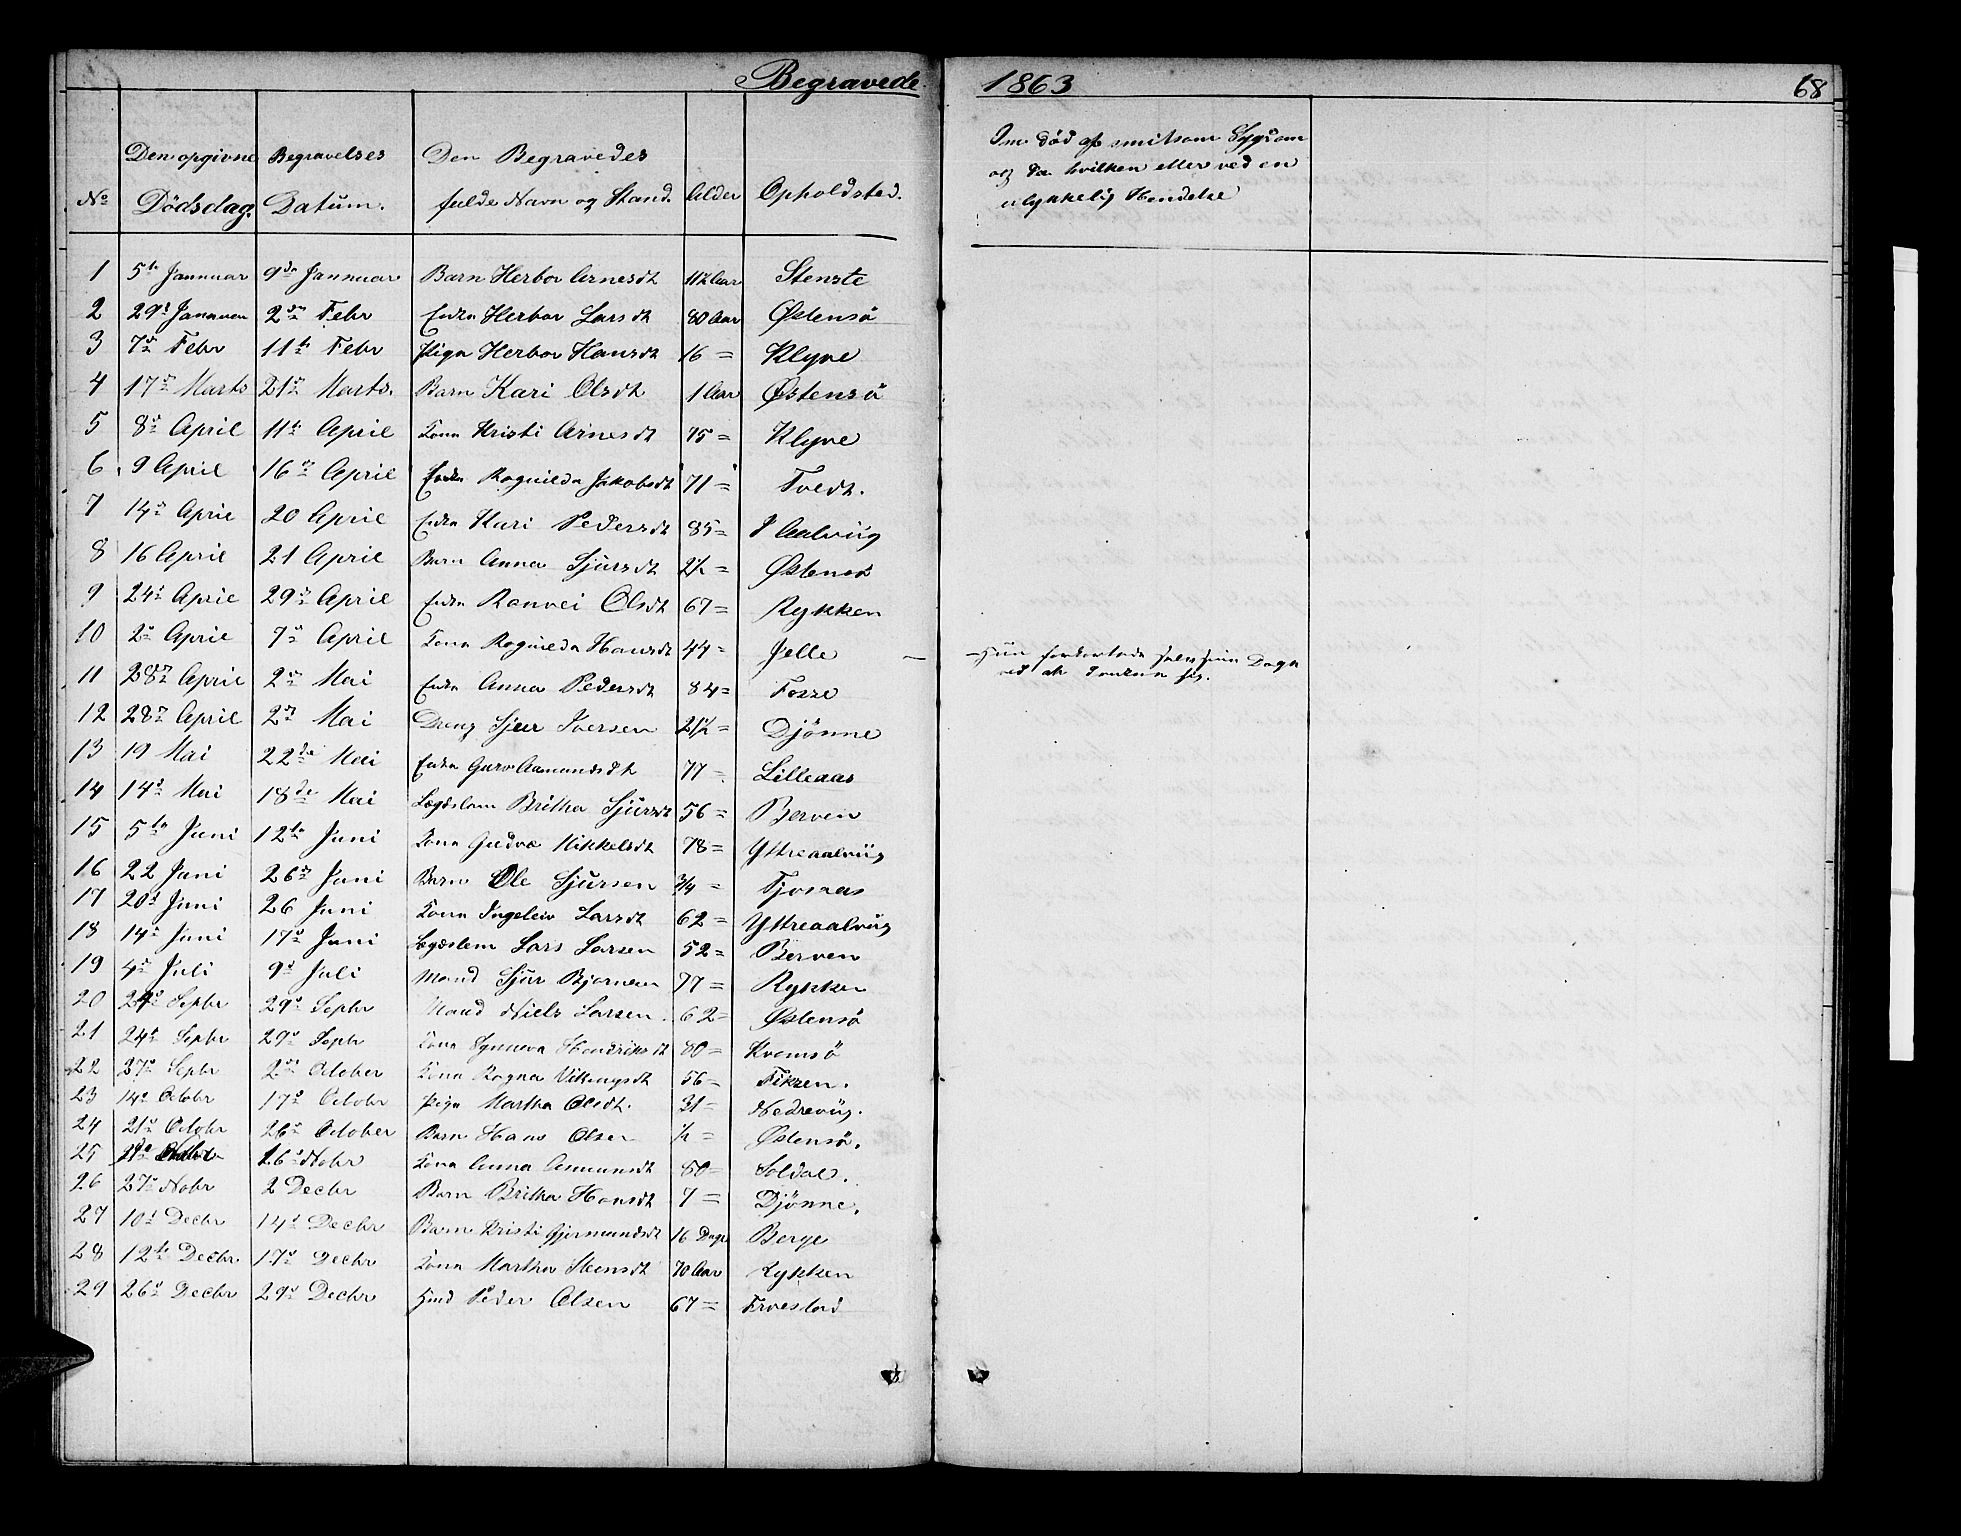 Begravede 1863 68
No Den opgivne Dödsdag. Begravelses Datum. Den Begravedes fulde Navn og Stand. Alder Opholdsted. Om död af smitsom Sygdom og da hvilken eller ved en ulykkelig Hendelse
1 5te Jannuar 9de Jannuar Barn Herbor Arnesdt 11½ Aar Stenstø
2 29d 2den Febr Enka Herbor Larsdt 80 Aar Østensö
3 7de Febr 11te Febr Pige Herbor Hansdt 16 = Klyve
4 17de Marts 21de Marts. Barn Kari Olsdt 1 Aar Østensö
5 8de April 11te April Kona Kristi Arnesdt 75 = Klyve
6 9 April 16de April Enka Ragnilda Jakobsdt 71 = Tvedt.
7 14de April 20 April Enka Kari Pedersdt 85 = I Aalviig
8 16 April 21 April Barn Anna Sjursdt 2½ = Østensö
9 24d April 29de April Enka Ranvei Olsdt 67 = Rykken
10 2de April 7de April Kona Ragnilda Hansdt 44 = Jelle — Hun forkortede selv sine Dage
ved at
11 28de April 2den Mai Enka Anna Pedersdt 84 = Fosse
12 28de April 2den Mai Dreng Sjur Iversen 2½ = Djönne
13 19 Mai 22de Mai Enka Guro Aamundsdt 77 = Lilleaas
14 14d Mai 18de Mai Lægdslem Britha Sjursdt 56 = Berven
15 5te Juni 12te Juni Kona Gudve Mikkelsdt 78 = Yttreaalviig
16 22 Juni 26de Juni Barn Ole Sjursen ¾ = Tjosaas
17 20d Juni 26 Juni Kona Ingeleiv Larsdt 62 = Yttreaalviig
18 14de Juni 17de Juni Lægdslem Lars Larsen 52 = Berven
19 4de Juli 9d Juli Mand Sjur Bjornsen 77 = Rykken
20 24de Septbr 29d Septbr Mand Niels Larsen. 62 = Østensö
21 24d Septbr 29d Septbr Kona Synneva Hendriksdt 80 = Kvamsö
22 27de Septbr 2den October Kona Ragna Vikingsdt 56 = Fiksen.
23 14d Octobr 17d Octobr Pige Martha Olsdt. 31 = Nedreviig.
24 21d Octobr 26d October Barn Hans Olsen ½ = Østensö.
25 26d Nobr Kona Anna Amundsdt 80 = Soldal.
26 27de Nobr 2 Decbr Barn Britha Hansdt 7 = Djönne.
27 10d Decbr 14d Decbr Barn Kristi Gjermundsdt 16 Dage Berge
28 12te Decbr 17d Decbr Kona Martha Stensdt 70 Aar Rykken
29 26d Decbr 29d Decbr Peder Olsen 67 =